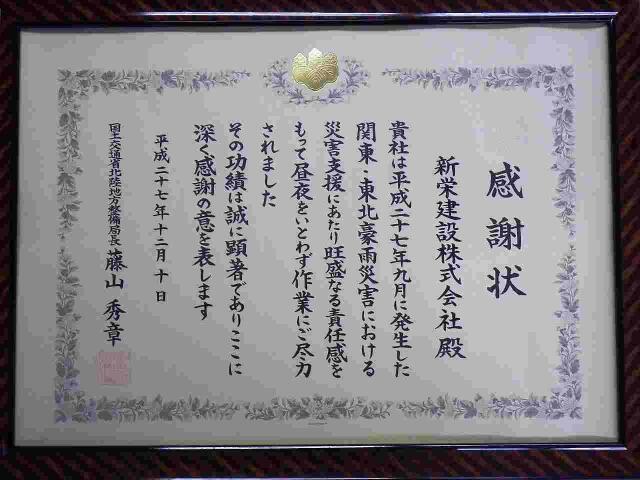 感謝状
新栄建設株式会社 殿
貴社は平成二十七年九月に発生した
関東・東北豪雨災害における
災害支援にあたり旺盛なる責任感を
もって昼夜をいとわず作業にご尽力
されました
その功績は誠に顕著でありここに
深く感謝の意を表します
平成二十七年十二月十日
国土交通省北陸地方整備局長 藤山秀章